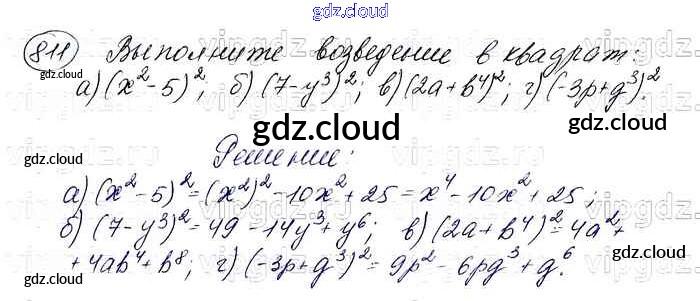 gdz.cloud
811 Выполните возведение в квадрат:
а) (x² - 5)²; б) (7 - y³)²; в) (2a + b⁴)²; г) (-3p + q³)².
gdz.cloud
gdz.cloud
gdz.cloud
gdz.cloud
gdz.cloud
Решение:
а) (x² - 5)² = (x²)² - 10x² + 25 = x⁴ - 10x² + 25;
б) (7 - y³)² = 49 - 14y³ + y⁶; в) (2a + b⁴)² = 4a² +
+ 4ab⁴ + b⁸; г) (-3p + q³)² = 9p² - 6pq³ + q⁶.
gdz.cloud
gdz.cloud
gdz.cloud